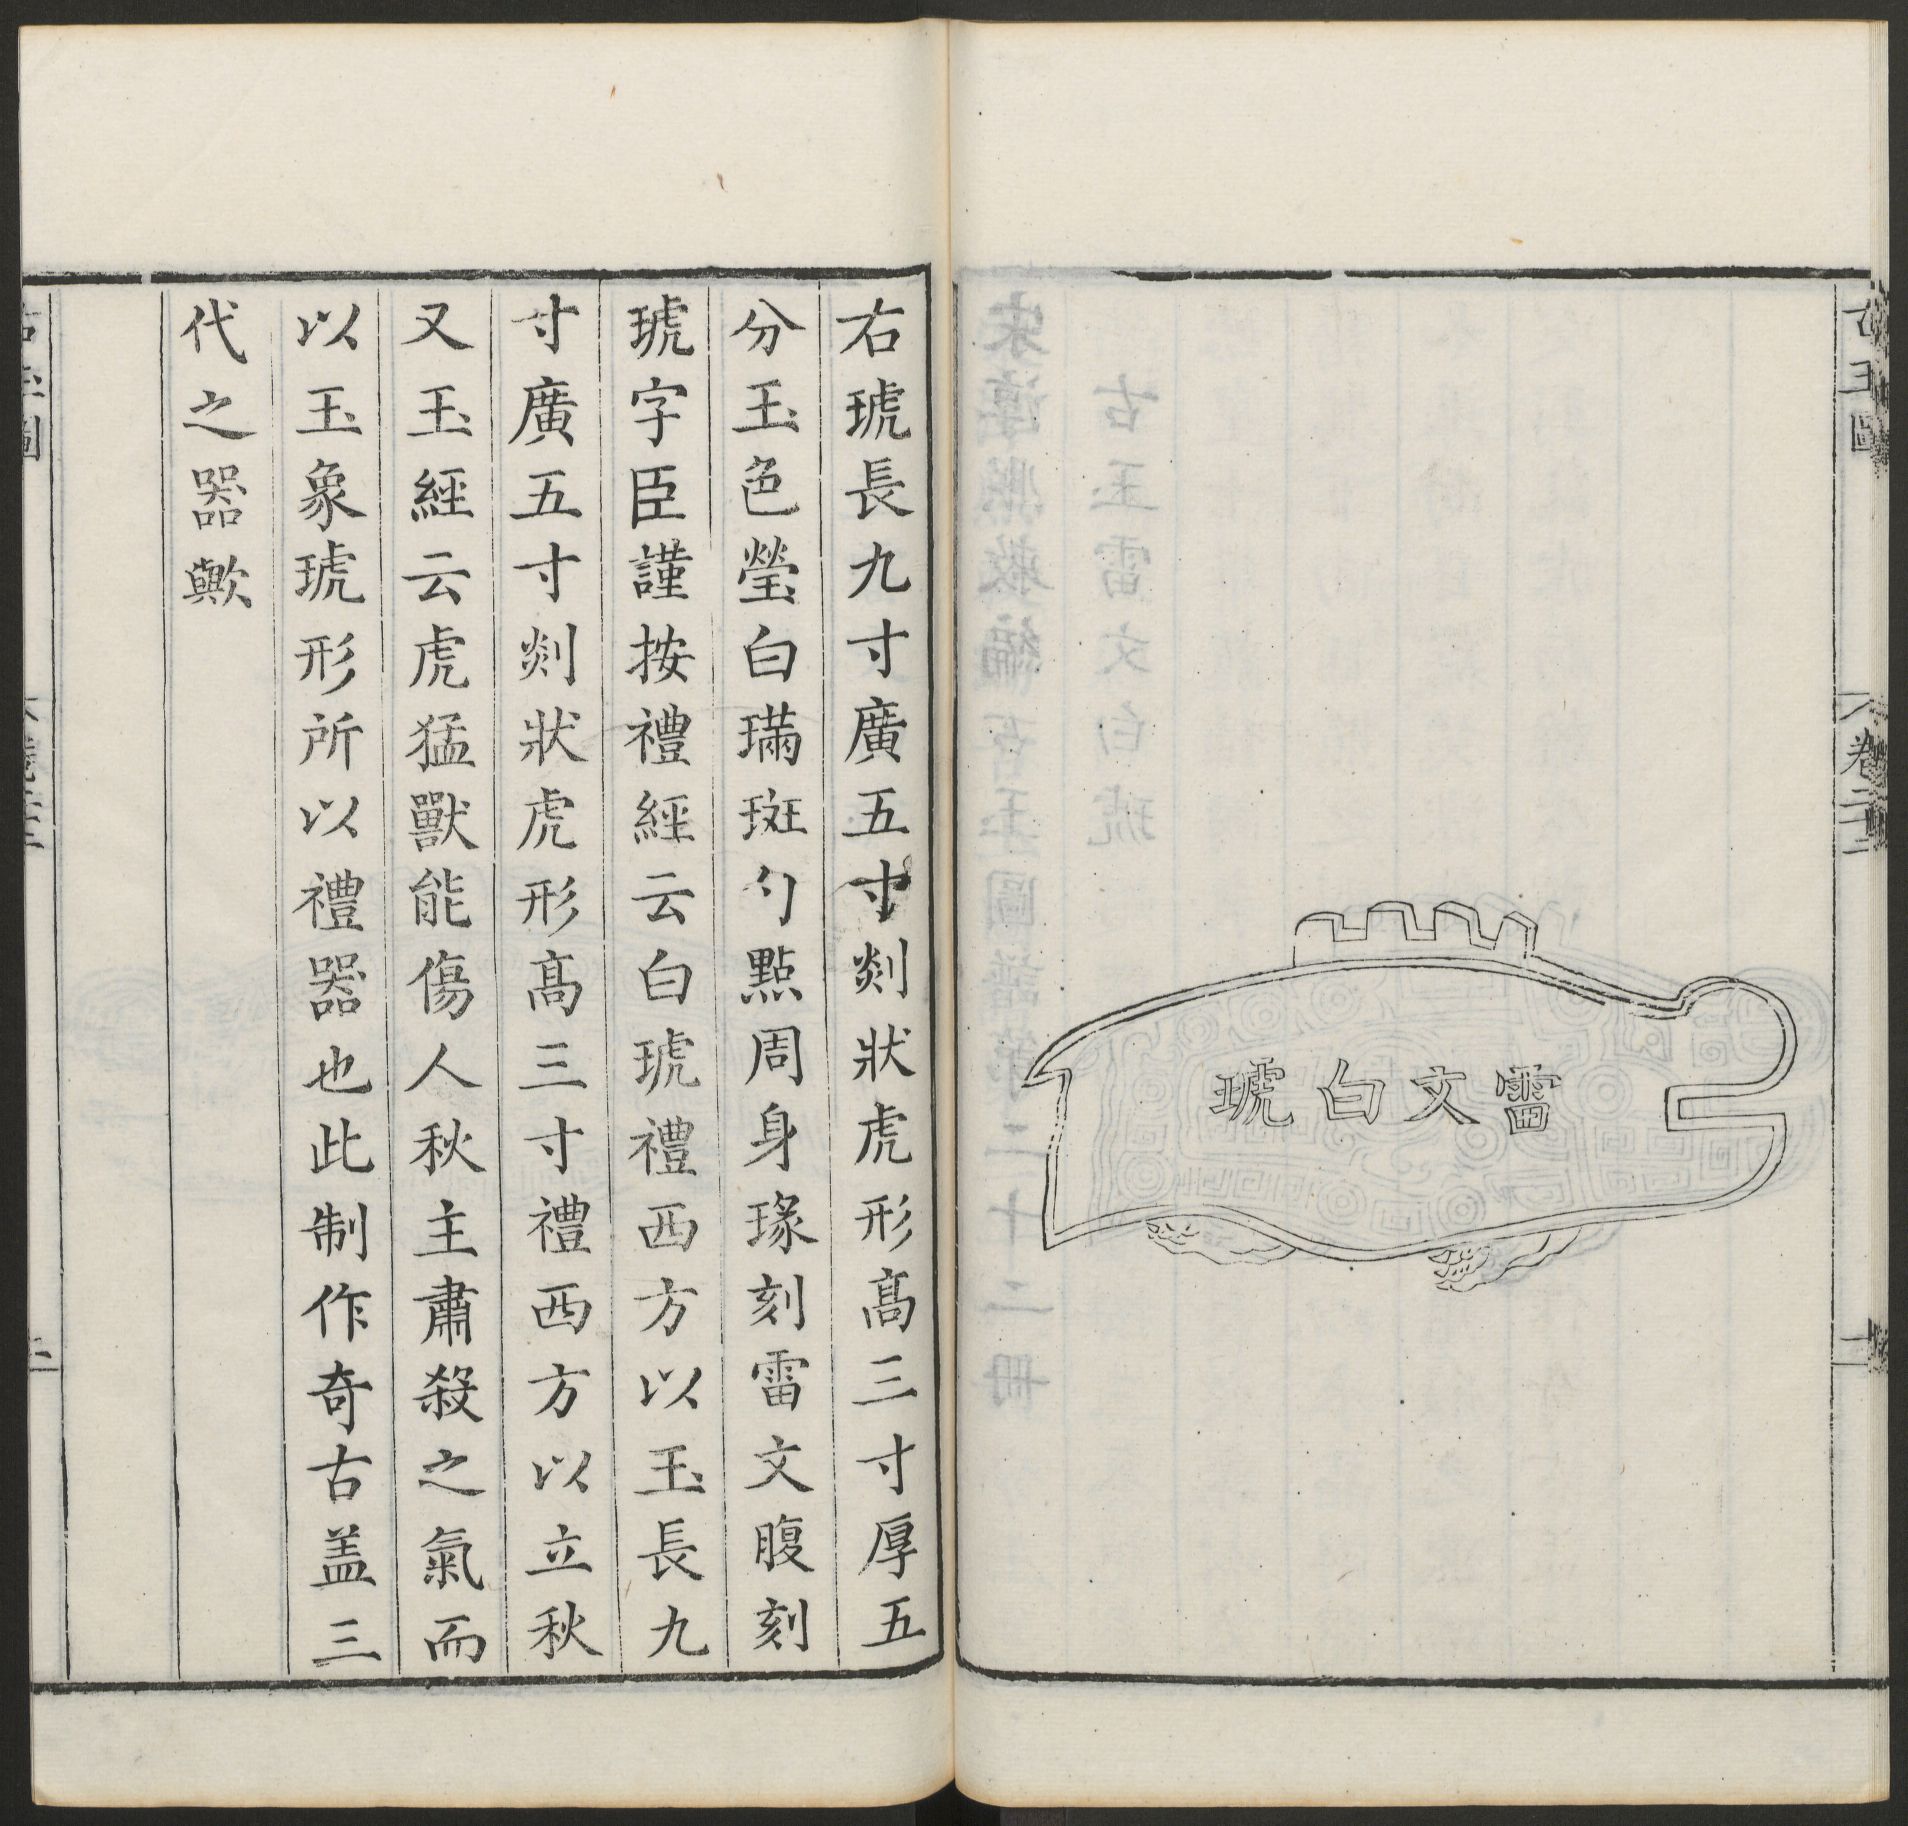 古玉圖
卷
雷文白琥
右琥長九寸廣五寸剡狀虎形髙三寸厚五
分玉色瑩白璊斑勺點周身瑑刻雷文腹刻
琥字臣謹按禮經云白琥禮西方以玉長九
寸廣五寸剡狀虎形髙三寸禮西方以立秋
又玉經云虎猛獸能傷人秋主肅殺之氣而
以玉象琥形所以禮器也此制作奇古盖三
代之器歟